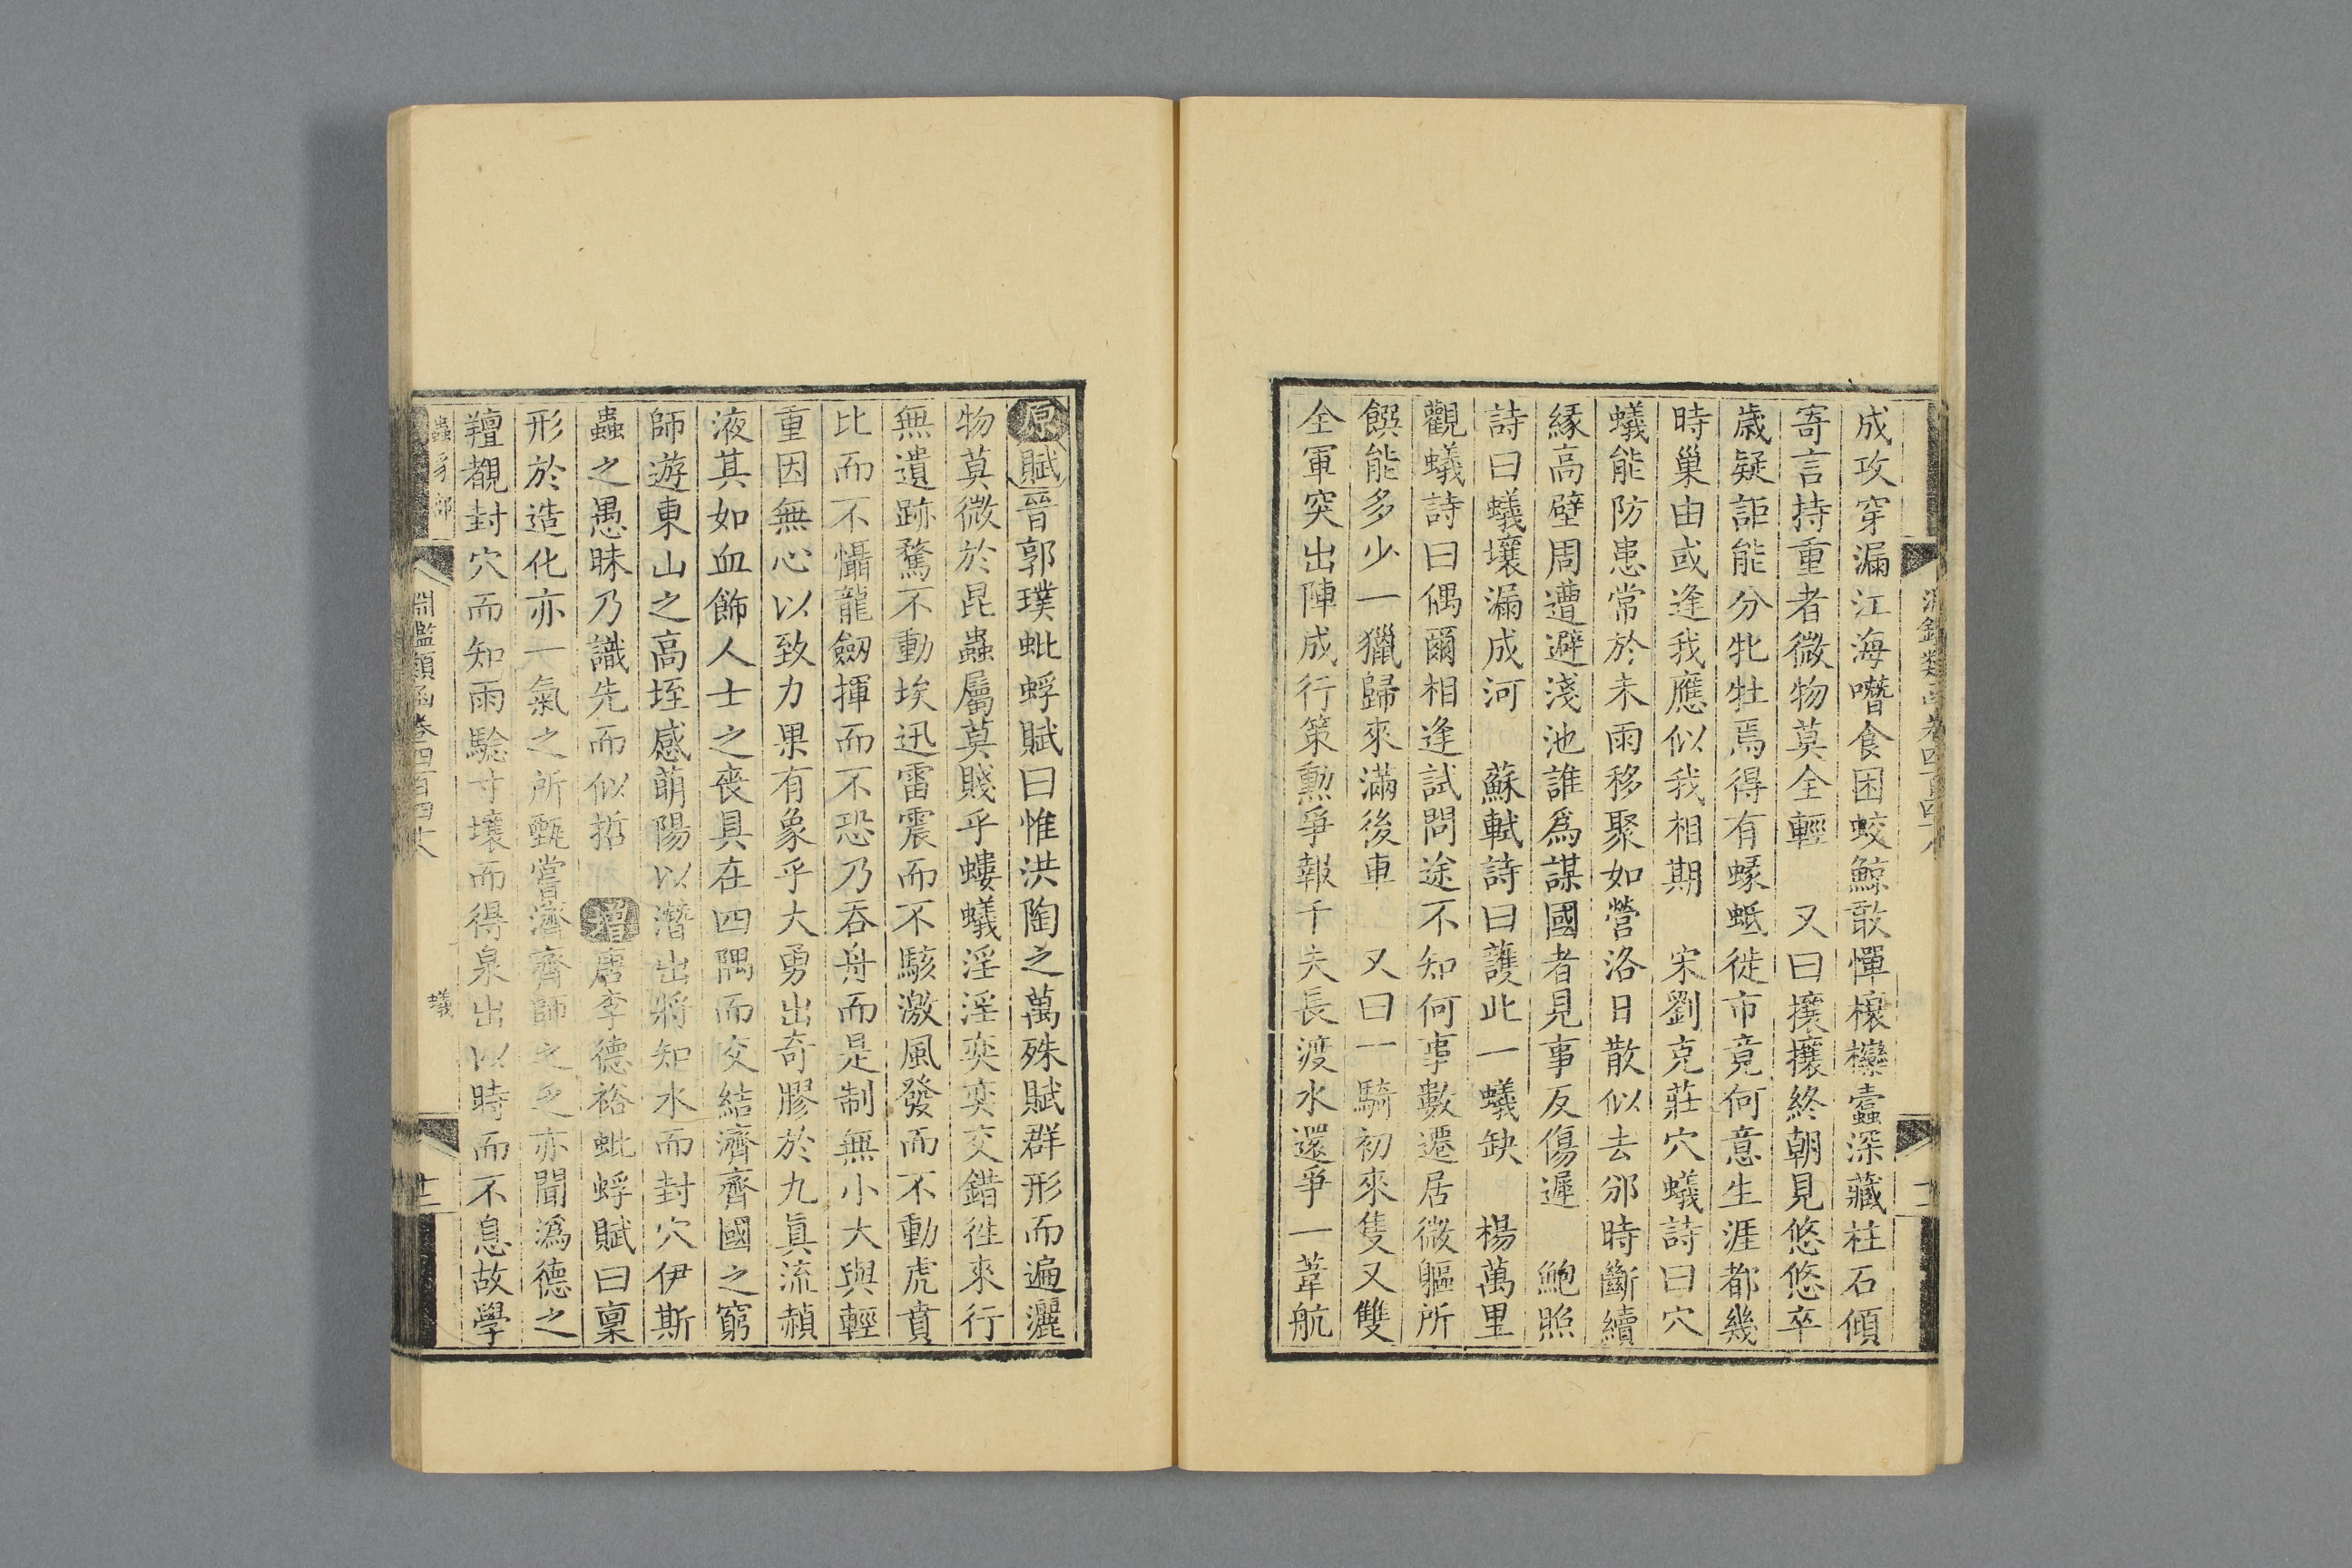 成攻穿漏江海噆食困蛟鯨敢憚欀櫺蠹深藏柱石傾
寄言持重者微物莫全輕　又曰攘攘終朝見悠悠卒
歲疑詎能分牝牡焉得有蝝蚳徙市竟何意生涯都幾
時巢由或逢我應似我相期　宋劉克莊穴蟻詩曰穴
蟻能防患常於未雨移聚如營洛日散似去邠時斷續
緣高壁周遭避淺池誰爲謀國者見事反傷遲　鮑照
詩曰蟻壤漏成河　蘇軾詩曰護此一蟻缺　楊萬里
觀蟻詩曰偶爾相逢試問途不知何事數遷居微軀所
饌能多少一獵歸來滿後車　又曰一騎初來隻又雙
全軍突出陣成行策勲爭報千夫長渡水還爭一葦航
原賦晉郭璞蚍蜉賦曰惟洪陶之萬殊賦群形而遍灑
物莫微於昆蟲屬莫賤乎螻蟻淫淫奕奕交錯徃來行
無遺跡騖不動埃迅雷震而不駭激風發而不動虎賁
比而不懾龍劒揮而不恐乃吞舟而是制無小大與輕
重因無心以致力果有象乎大勇出奇膠於九眞流赬
液其如血飾人士之喪具在四隅而交結濟齊國之窮
師遊東山之高垤感萌陽以潛出將知水而封穴伊斯
蟲之愚昧乃識先而似哲　增唐李德裕蚍蜉賦曰稟
形於造化亦一氣之所甄嘗濟齊師之乏亦聞爲德之
羶覩封穴而知雨驗寸壤而得泉出以時而不息故學
蟲豸部
淵鑑類函卷四百四十八
蟻
十二